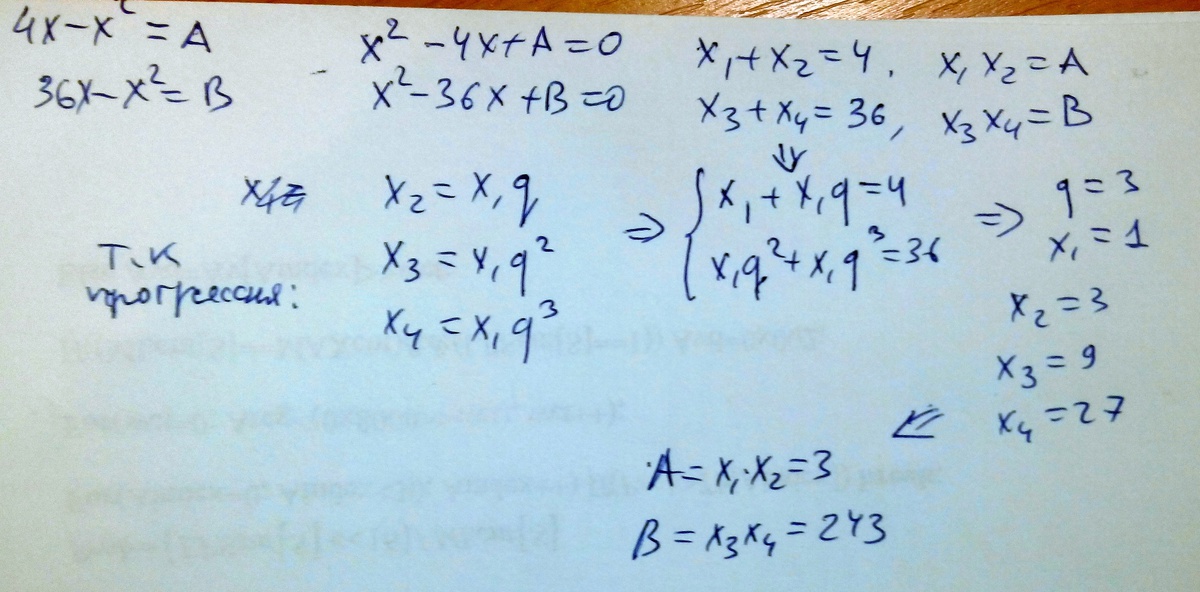 4x-x² = A
36x-x² = B
x² -4x+A=0
x²-36x+B=0
x₁+x₂=4, x₁x₂=A
x₃+x₄=36, x₃x₄=B
⇓
Т.к
прогрессия:
x₂ = x₁q
x₃ = x₁q²
x₄ = x₁q³
⇒ { x₁+x₁q=4
x₁q²+x₁q³=36
⇒ q=3
x₁=1
x₂=3
x₃=9
x₄=27
⇐
A= x₁·x₂=3
B = x₃x₄ = 243